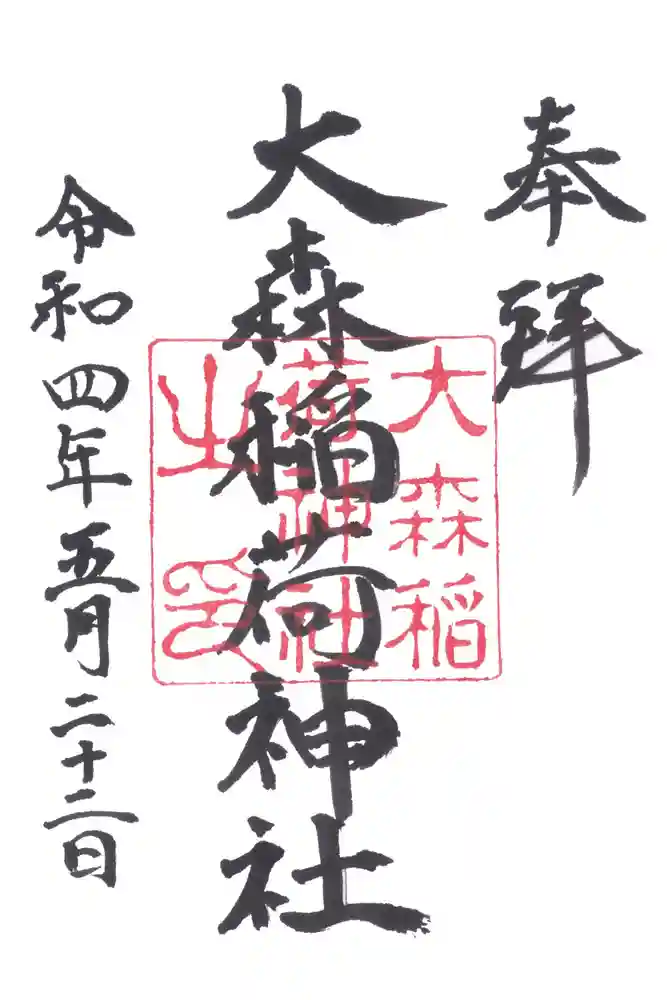 奉拝
大森稲荷神社
令和四年五月二十二日
大森稲
荷神社
之印